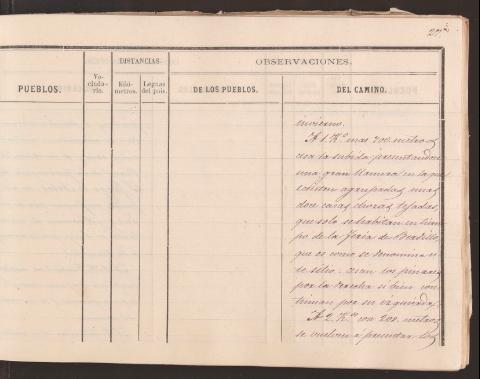 27
PUEBLOS.
Ve-cinda-rio.
DISTANCIAS.
Kiló-metros.
Leguas del pais.
OBSERVACIONES.
DE LOS PUEBLOS.
DEL CAMINO.
invierno.
A 1. K.º mas 700 metros
cesa la subida presentandose
una gran llanura en la que
existen agrupadas unas
doce casas chozas tejadas,
que solo se habitan en tiem-
po de la Feria de
que es como se denomina es-
te sitio: cesan los pinares
por la derecha si bien con-
tinuan por su izquierda.
A 2. K.º con 200 metros
se vuelven á presentar los